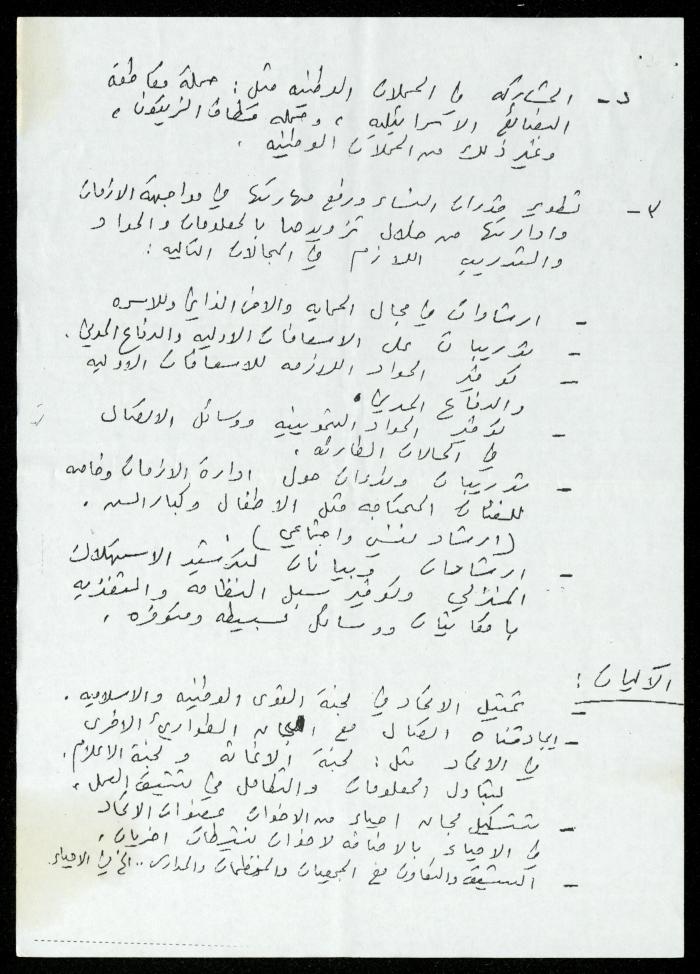 ٢- المشاركه في الحملات الوطنيه مثل : حملة مقاطعة
البضائع الاسرائيليه ، وحمله قطاف الزيتون ،
وغير ذلك من الحملات الوطنيه .
٣- تطوير قدرات النساء ورفع مهارتها في مواجهة الازمات
وادارتها من خلال تزويدها بالمعلومات والمواد
والتدريب اللازم في المجالات التاليه :
- ارشادات في مجال الحمايه والامن الذاتي وللاسره
- تدريبات على الاسعافات الاوليه والدفاع المدني .
- توفير المواد اللازمه للاسعافات الاوليه
والدفاع المدني .
- توفير المواد التموينيه ووسائل الاتصال
في الحالات الطارئه .
- تدريبات ونشرات حول ادارة الازمات وخاصه
للفئات المحتاجه مثل الاطفال وكبار السن .
( ارشاد نفسي واجتماعي )
- ارشادات وبيانات لترشيد الاستهلاك
المنزلي وتوفير سبل النظافه والتغذيه
بامكانيات ووسائل بسيطه ومتوفره .
الآليات :
- تمثيل الاتحاد في لجنة القوى الوطنيه والاسلاميه .
- ايجاد قناه اتصال مع لجان الطوارئ الاخرى
في الاتحاد مثل : لجنة الاغاثة ولجنة الاعلام .
لتبادل المعلومات والتكامل في تنسيق العمل .
- تشكيل لجان احياء من الاخوات عضوات الاتحاد
في الاحياء بالاضافه لاخوات نشيطات اخريات .
- التنسيق والتعاون مع الجمعيات والمنظمات والمدارس .. الخ في الاحياء .